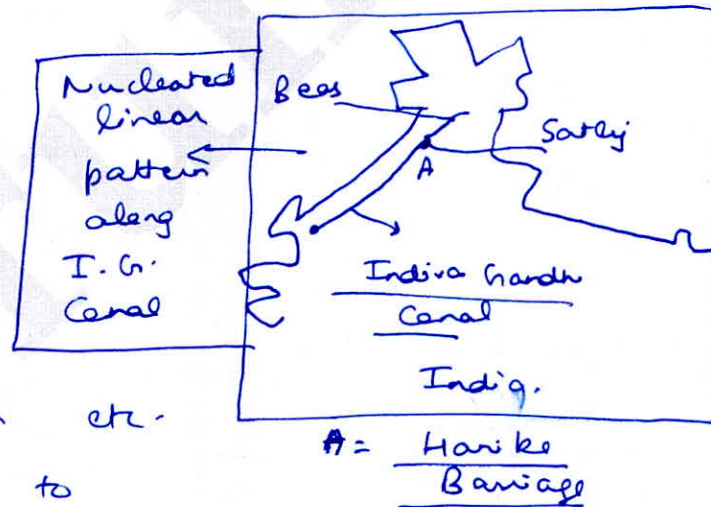 Nucleated
linear
pattern
along
I. G.
Canal
Beas
Satluj
A
Indira Gandhi
Canal
India.
etc.
to
A = Harike
Barriage